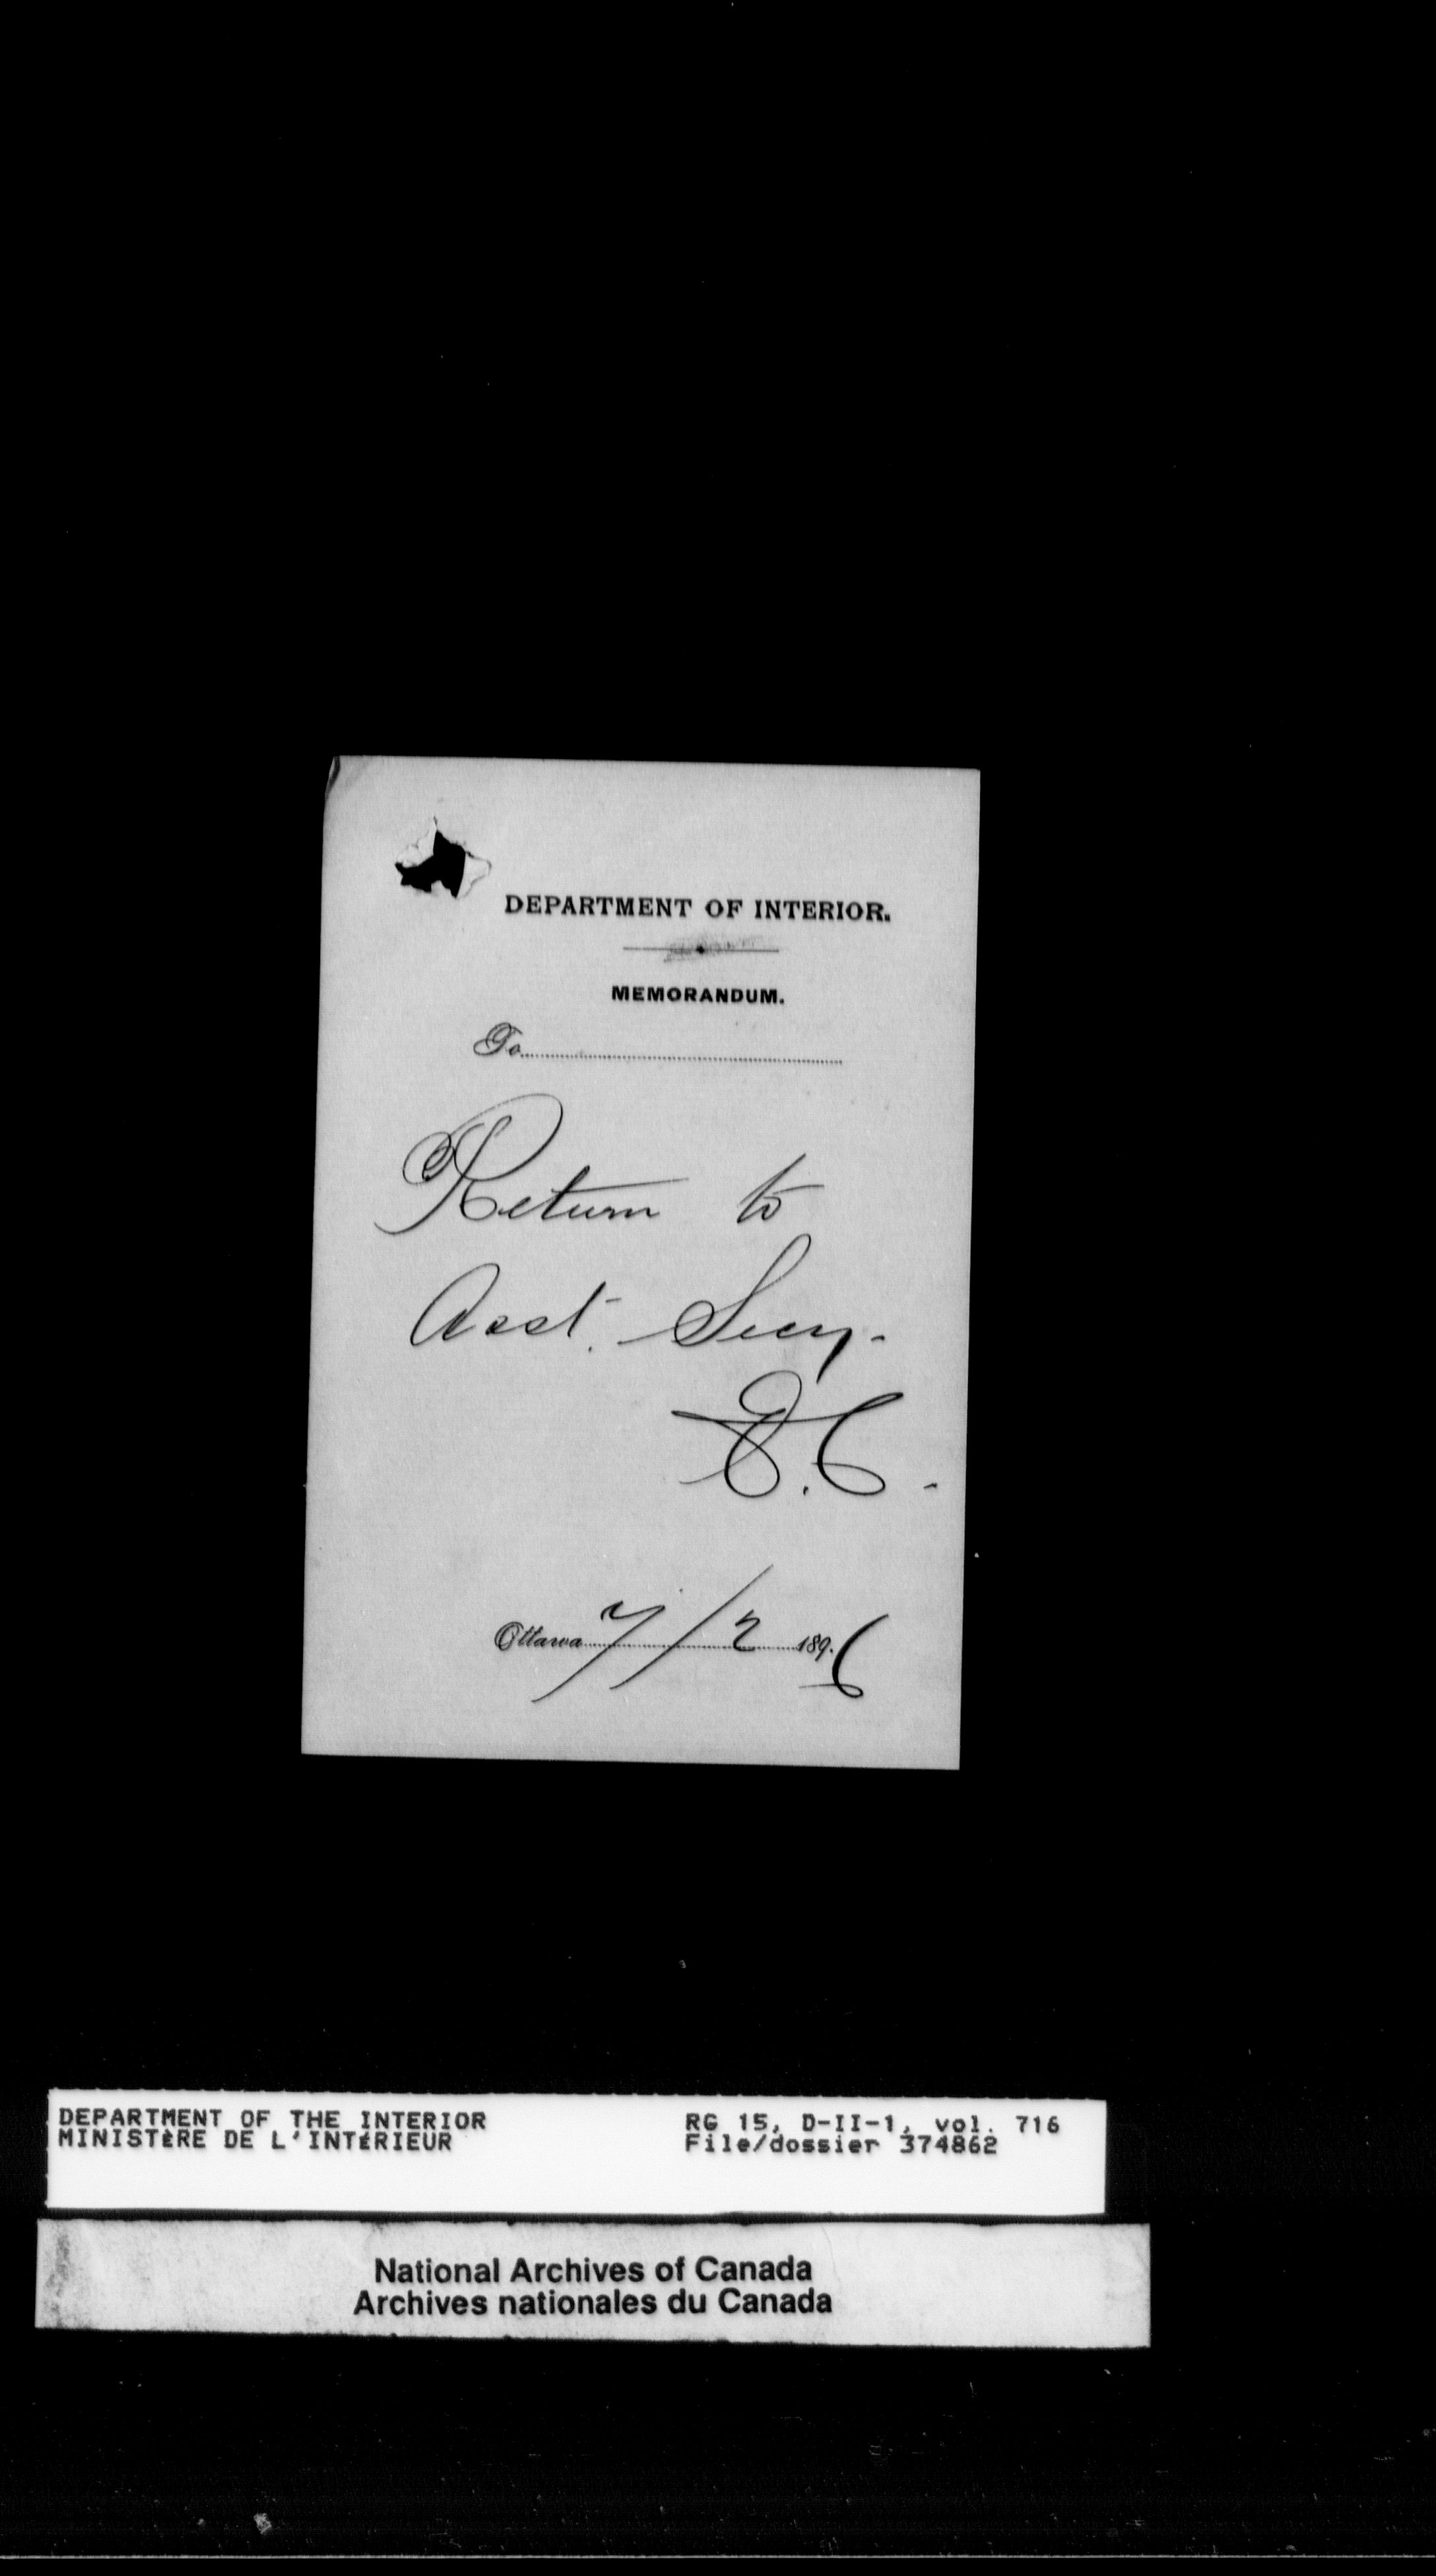 DEPARTMENT OF INTERIOR.
MEMORANDUM.
To
Return to
Asst. Secy.
Ottawa 7/2 1896
DEPARTMENT OF THE INTERIOR
MINISTÈRE DE L'INTÉRIEUR
RG 15, D-II-1, vol. 716
File/dossier 374862
National Archives of Canada
Archives nationales du Canada